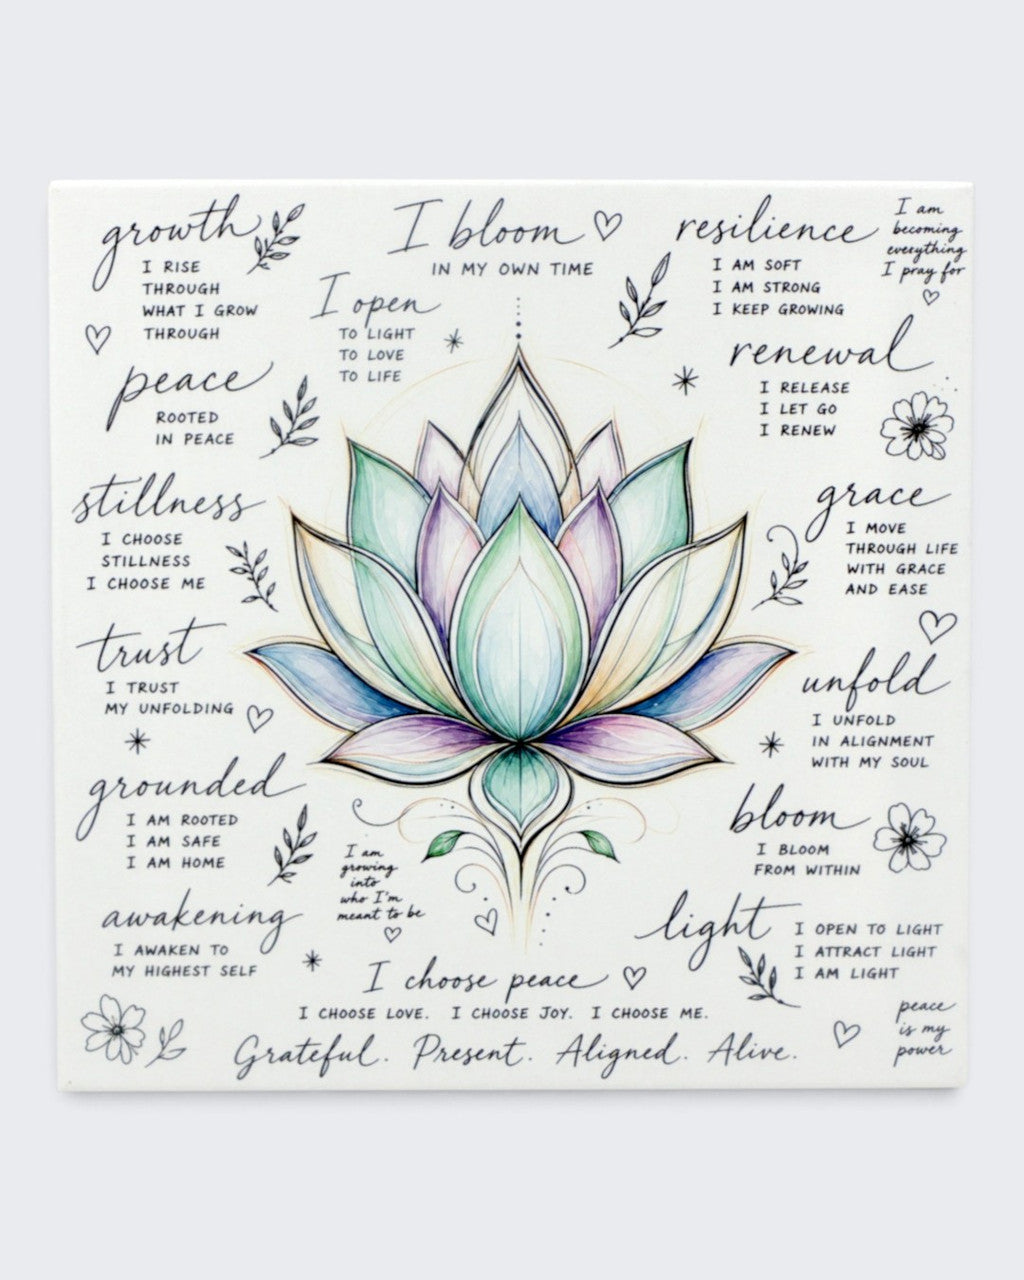 growth
I RISE
THROUGH
WHAT I GROW
THROUGH
I bloom
IN MY OWN TIME
I open
TO LIGHT
TO LOVE
TO LIFE
resilience
I AM SOFT
I AM STRONG
I KEEP GROWING
I am
becoming
everything
I pray for
peace
ROOTED
IN PEACE
renewal
I RELEASE
I LET GO
I RENEW
stillness
I CHOOSE
STILLNESS
I CHOOSE ME
grace
I MOVE
THROUGH LIFE
WITH GRACE
AND EASE
trust
I TRUST
MY UNFOLDING
unfold
I UNFOLD
IN ALIGNMENT
WITH MY SOUL
grounded
I AM ROOTED
I AM SAFE
I AM HOME
I am
growing
into
who I'm
meant to be
bloom
I BLOOM
FROM WITHIN
awakening
I AWAKEN TO
MY HIGHEST SELF
light
I OPEN TO LIGHT
I ATTRACT LIGHT
I AM LIGHT
I choose peace
I CHOOSE LOVE. I CHOOSE JOY. I CHOOSE ME.
Grateful. Present. Aligned. Alive.
peace
is my
power